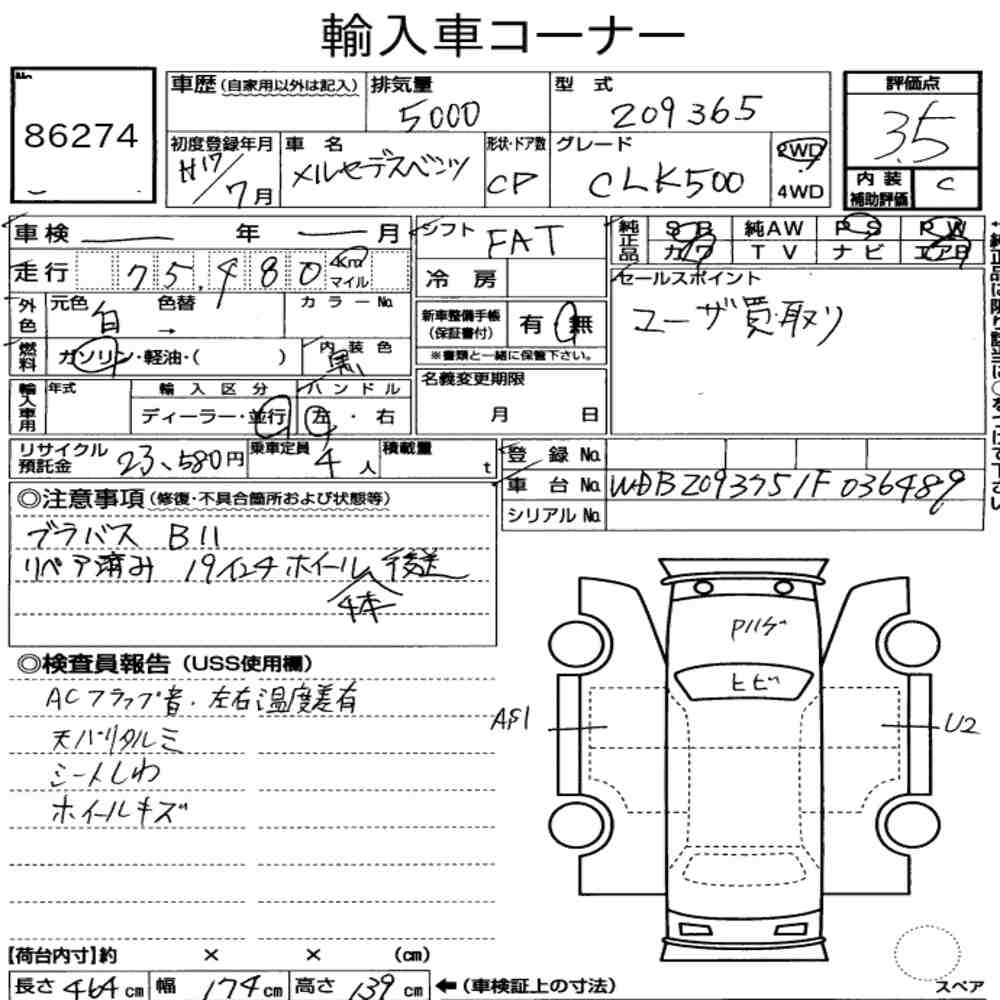 輸入車コーナー
No.
86274
車歴 (自家用以外は記入)
排気量
5000
型 式
209365
評価点
3.5
初度登録年月
H17/7月
車 名
メルセデスベンツ
形状・ドア数
CP
グレード
CLK500
2WD
4WD
内 装
補助評価
C
車 検 年 月
走 行 75,480 Km
マイル
外色
元色 白
色替 →
カラーNo.
燃料
ガソリン・軽油・( )
内 装 色
黒
輸入車用
年式
輸 入 区 分
ディーラー・並行
ハ ン ド ル
左 ・ 右
リサイクル
預託金
23,580円
乗車定員
4人
積載量
t
シフト
FAT
冷 房
新車整備手帳
(保証書付)
有 無
※書類と一緒に保管下さい。
名義変更期限
月 日
純正品
S R 純AW P S P W
カワ T V ナ ビ エアB
セールスポイント
ユーザ買取り
登 録 No.
車 台 No. WDB2093751F036489
シリアル No.
◎注意事項 (修復・不具合箇所および状態等)
ブラバス B11
リペア済み 19インチホイール 後送
4本
◎検査員報告 (USS使用欄)
ACフラップ音・左右温度差有
天バリタルミ
シートしわ
ホイールキズ
Pハゲ
ヒビ
AP1
U2
【荷台内寸】約 × × (cm)
長さ 464 cm 幅 174 cm 高さ 139 cm ←(車検証上の寸法)
スペア